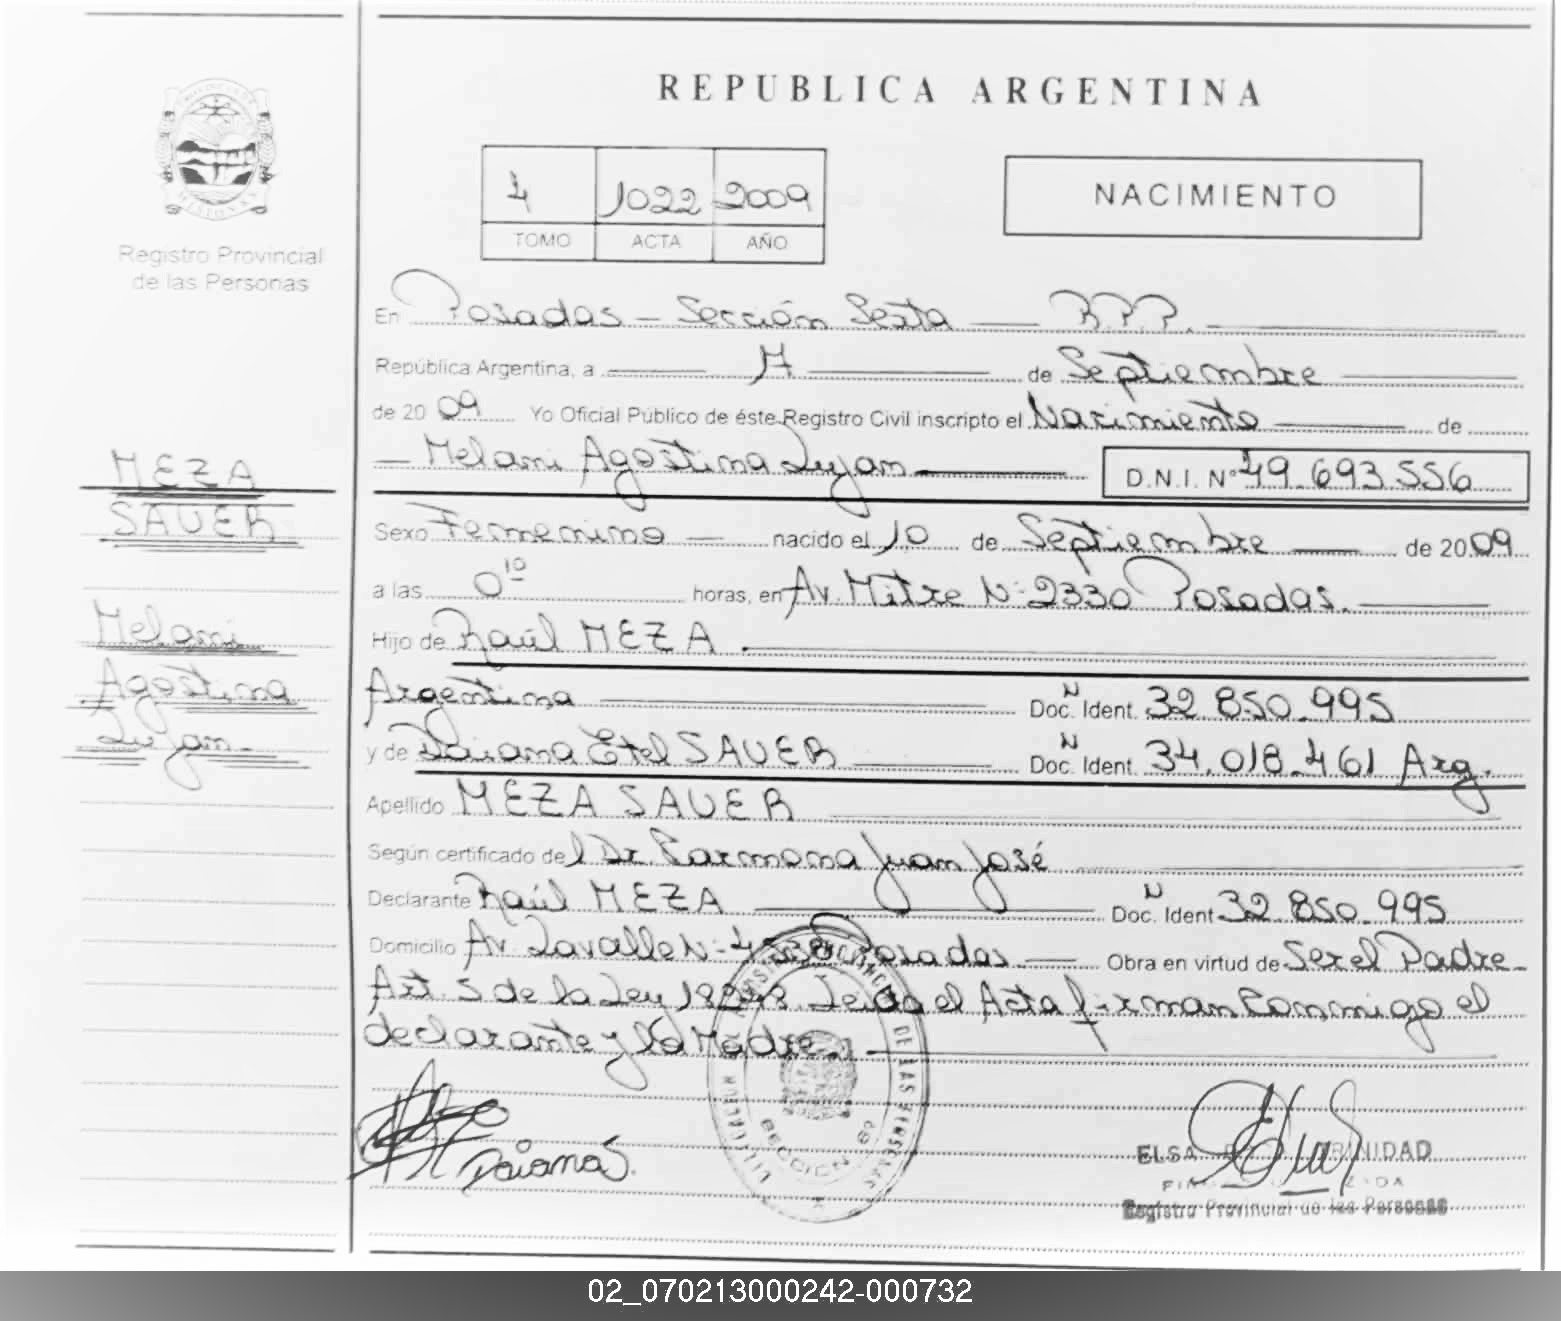 REPUBLICA ARGENTINA
MISIONES
Registro Provincial
de las Personas
4 1022 2009
TOMO ACTA AÑO
NACIMIENTO
En Posadas - Sección Sexta — R.P.P. —
República Argentina, a — 11 — de Septiembre —
de 20 09 Yo Oficial Público de éste Registro Civil inscripto el Nacimiento — de
— Melani Agostina Lujan — D.N.I. Nº 49.693.556
MEZA
SAUER
Melani
Agostina
Lujan
Sexo Femenino — nacido el 10 de Septiembre — de 20 09
a las 0 10 horas, en Av. Mitre Nº 2330 Posadas. —
Hijo de Raúl MEZA. —
Argentina — N Doc. Ident. 32 850.995
y de Daiana Etel SAUER — N Doc. Ident. 34.018.461 Arg.
Apellido MEZA SAUER —
Según certificado del Dr. Carmona Juan José
Declarante Raúl MEZA — N Doc. Ident 32 850.995
Domicilio Av. Lavalle Nº Posadas — Obra en virtud de Ser el Padre
Art. 5 de la Ley 18248. Leida el Acta firman Conmigo el
declarante y la Madre. —
Daiana S.
DE LAS PERSONAS
SECCION 6ª
ELSA
Registro Provincial de las Personas
02_070213000242-000732